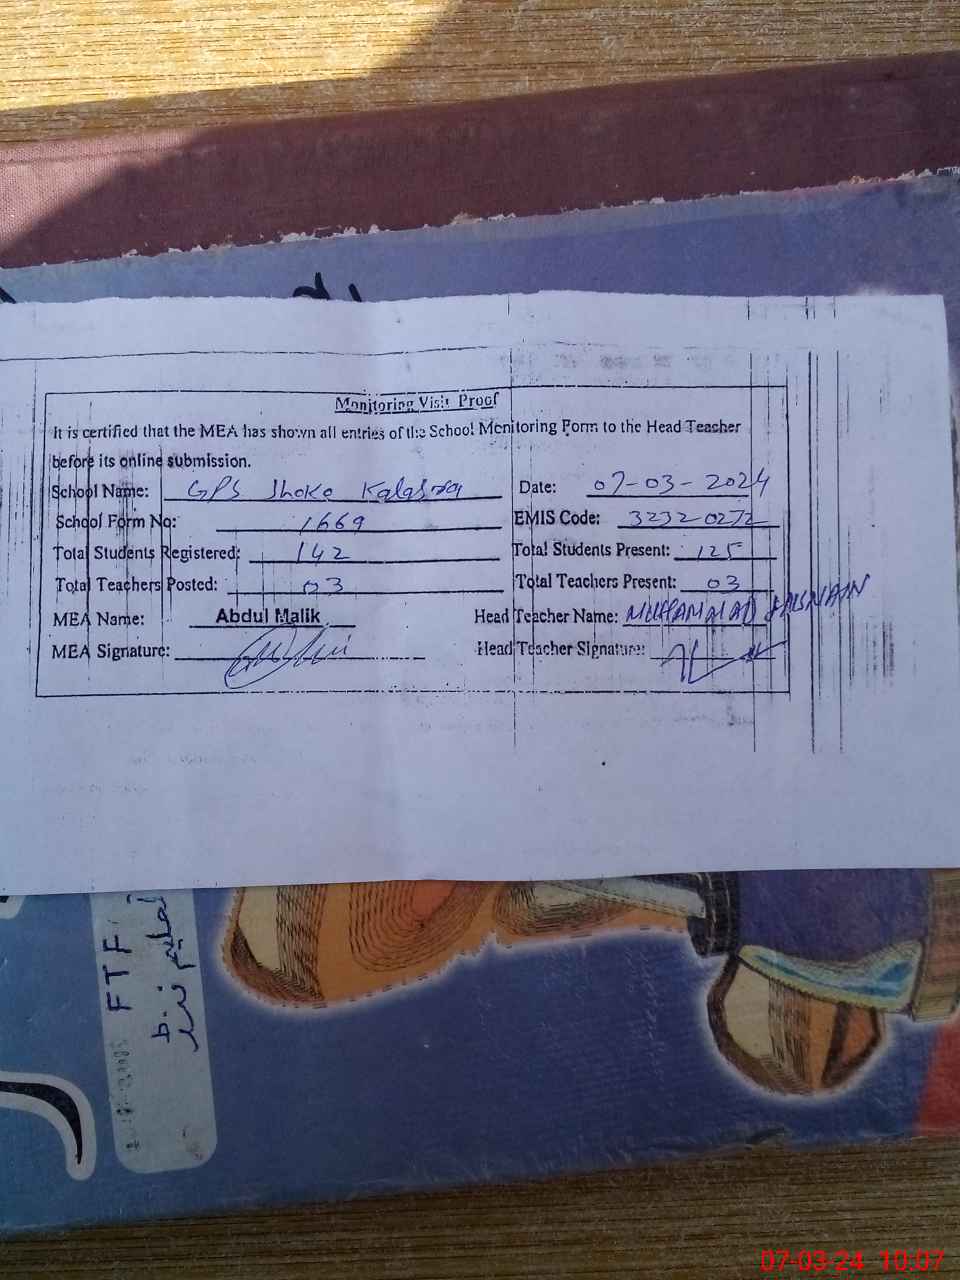 Monitoring Visit Proof
It is certified that the MEA has shown all entries of the School Monitoring Form to the Head Teacher
before its online submission.
School Name: GPS Jhoke Kalasra Date: 07-03-2024
School Form No: 1669 EMIS Code: 32320272
Total Students Registered: 142 Total Students Present: 125
Total Teachers Posted: 03 Total Teachers Present: 03
MEA Name: Abdul Malik Head Teacher Name: MUHAMMAD HASNAIN
MEA Signature: Head Teacher Signature:
FTF
07-03-24 10:07